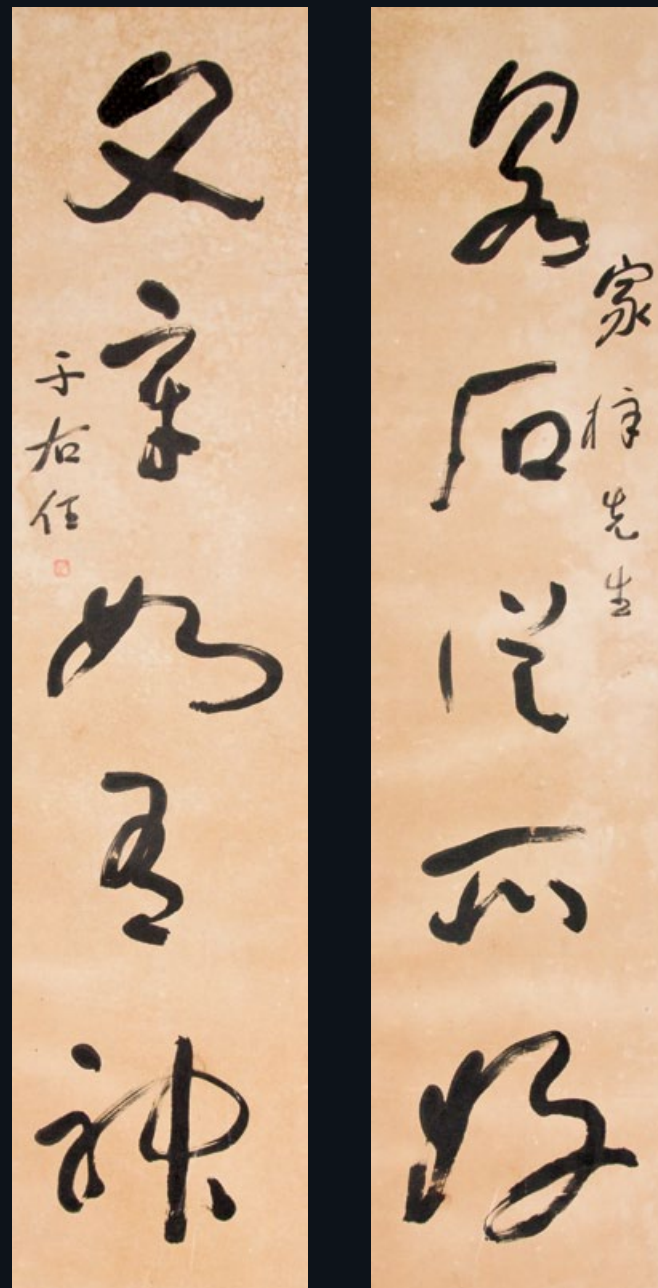 泉石從所好
家梓先生
文章如有神
于右任